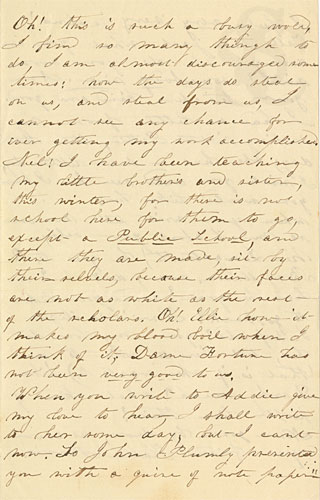 Oh! this is such a busy world,
I find so many things to
do, I am almost discouraged some
times; how the days do steal
on us, and steal from us, I
cannot see any chance for
ever getting my work accomplished
Nel! I have been teaching
my little brothers and sister,
this winter, for there is no
school here for them to go,
except a Public School, and
there they are made, sit by
their selvels, because their faces
are not as white as the rest
of the scholars. Oh! Ellie how it
makes my blood boil when I
think of it. Dame Fortune has
not been very good to us.
When you write to Addie give
my love to hear I shall write
to her some day, but I can't
now. So John Plumly presented
you with a quire of note paper"